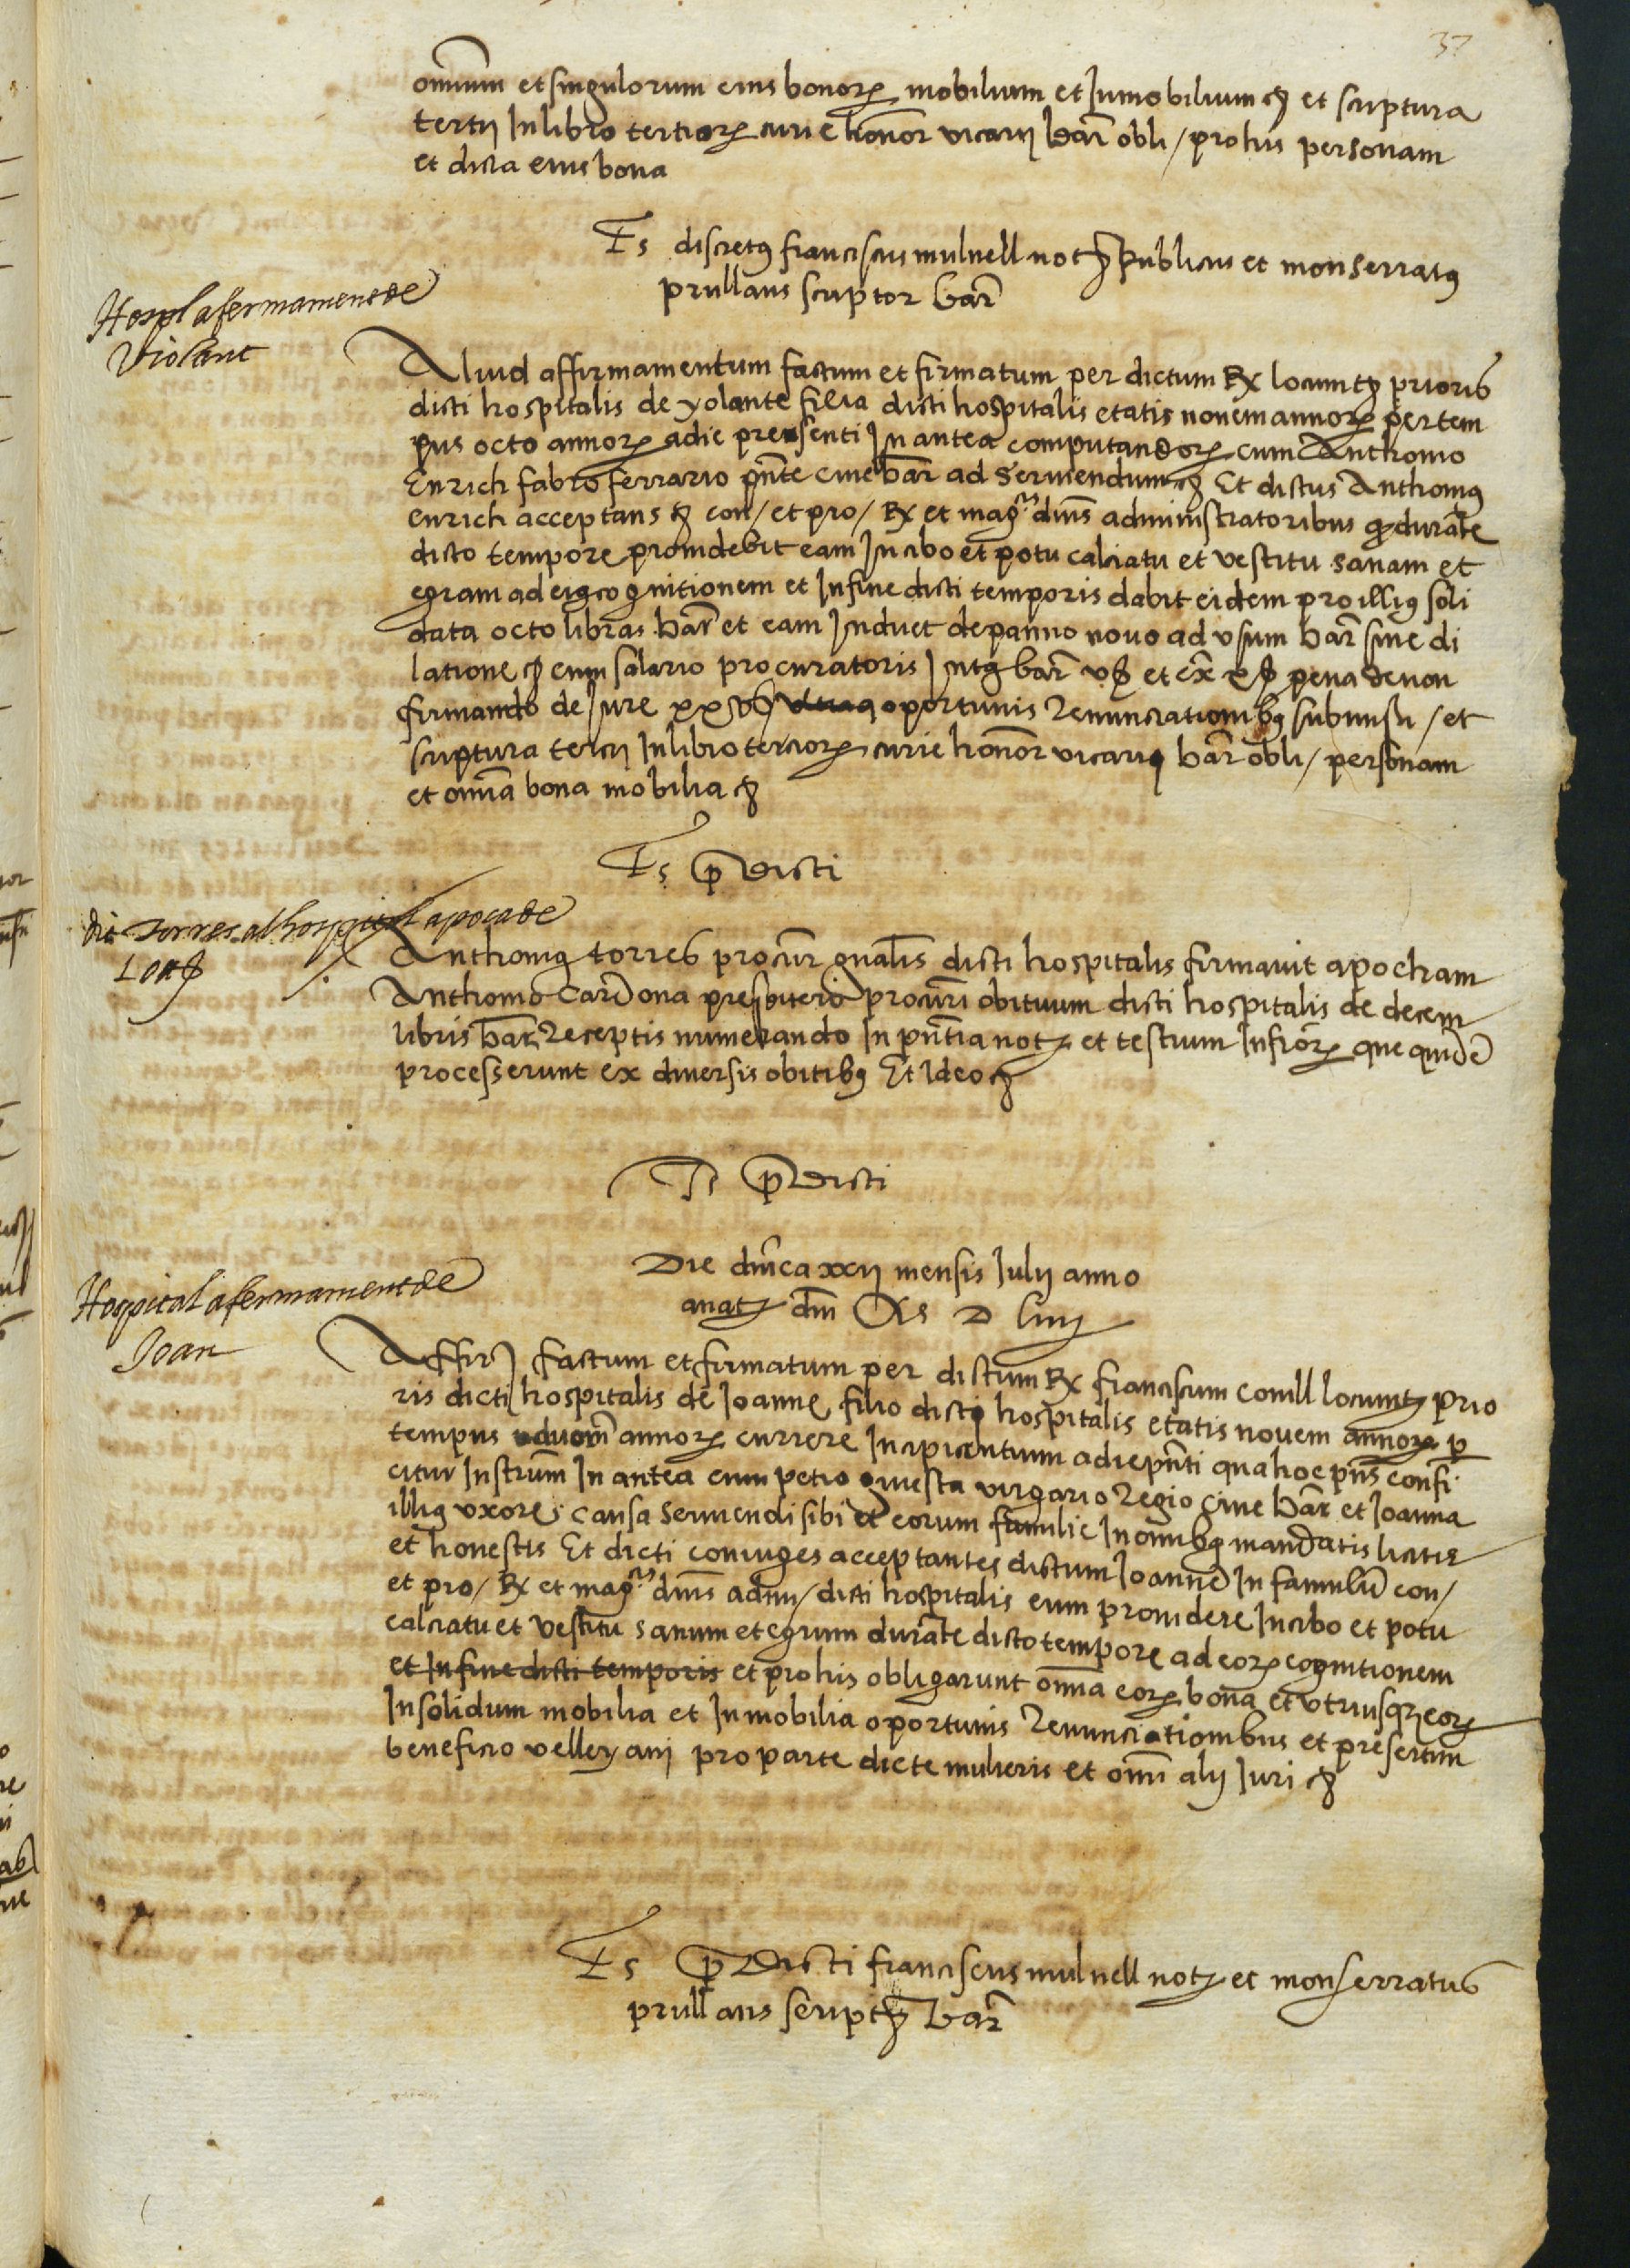 37
omnium et singulorum eius bonorum mobilium et Inmobilium etc et scriptura
tertij In libro tertiorum curie honor vicarij bar obli / pro his personam
et dicta eius bona
Ts discretus franciscus mulnell not publicus et monserratus
prullans scriptor bar
Hospl afermament de
Violant
Aliud affirmamentum factum et firmatum per dictum Rx locumt prioris
dicti hospitalis de yolante filia dicti hospitalis etatis nonem annorum per tem
pus octo annorum a die presenti In antea computandorum cum Anthonio
Enrich fabro ferrario pnte ciue bar ad seruiendum etc Et dictus Anthonius
enrich acceptans etc con / et pro / Rx et magcis dnis administratoribus qd durate
dicto tempore prouidebit eam In cibo et potu calciatu et vestitu sanam et
egram ad eius cognitionem et In fine dicti temporis dabit eidem pro illius soli
data octo libras bar et eam Induet de panno nouo ad vsum bar sine di
latione etc cum salario procuratoris Intus bar vs et ex xs pena de non
firmando de Jure xx s oportunis renunciationibus submisit / et
scriptura tercij In libro terciorum curie honor vicarij bar obli / personam
et omia bona mobilia etc
Ts pdicti
dit torres al hospital apoca de
10 ll
Anthonius torres procur gnalis dicti hospitalis firmauit apocham
Anthonio Cardona presbitero procuri obituum dicti hospitalis de decem
libris bar receptis numerando In pntia not et testium Infrorum que quide
processerunt ex diuersis obitibus Et Ideo etc
Ts pdicti
Die dnica xxij mensis Julij anno
a nat dni M D liiij
Hospital afermament de
Joan
Affir factum et firmatum per dictum Rx franciscum conill locumt prio
ris dicti hospitalis de Joanne filio dicti hospitalis etatis nouem annorum p
tempus duorum annorum currere Incipientium a die pnti qua hoc pns confi
citur Instrum In antea cum petro questa virgario regio ciue bar et Joanna
illius vxore causa seruiendi sibi et eorum familie In omnibus mandatis licitis
et honestis Et dicti coniuges acceptantes dictum Joanne In famulu con /
et pro / Rx et magcis dnis admi / dicti hospitalis eum prouidere In cibo et potu
calciatu et vestitu sanum et egrum durate dicto tempore ad eorum cognitionem
et In fine dicti temporis et pro his obligarunt omnia eorum bona et vtriusque eorum
In solidum mobilia et Inmobilia oportunis renunciationibus et presertim
beneficio velleyani pro parte dicte mulieris et omni alij Juri etc
Ts pdicti franciscus mulnell not et monserratus
prullans script bar